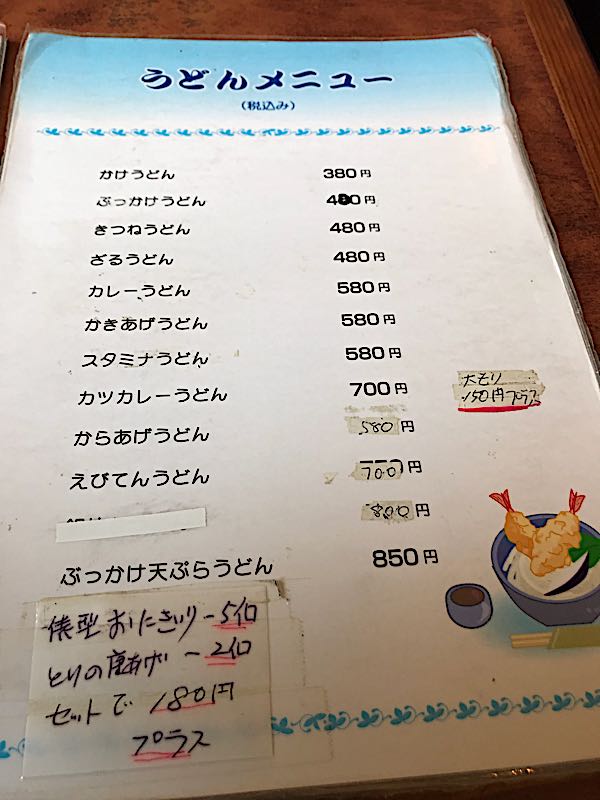 うどんメニュー
(税込み)
かけうどん 380円
ぶっかけうどん 480円
きつねうどん 480円
ざるうどん 480円
カレーうどん 580円
かきあげうどん 580円
スタミナうどん 580円
カツカレーうどん 700円
大モリ
150円プラス
からあげうどん 580円
えびてんうどん 700円
800円
ぶっかけ天ぷらうどん 850円
俵型おにぎりー5個
とりの唐あげー2個
セットで180円
プラス